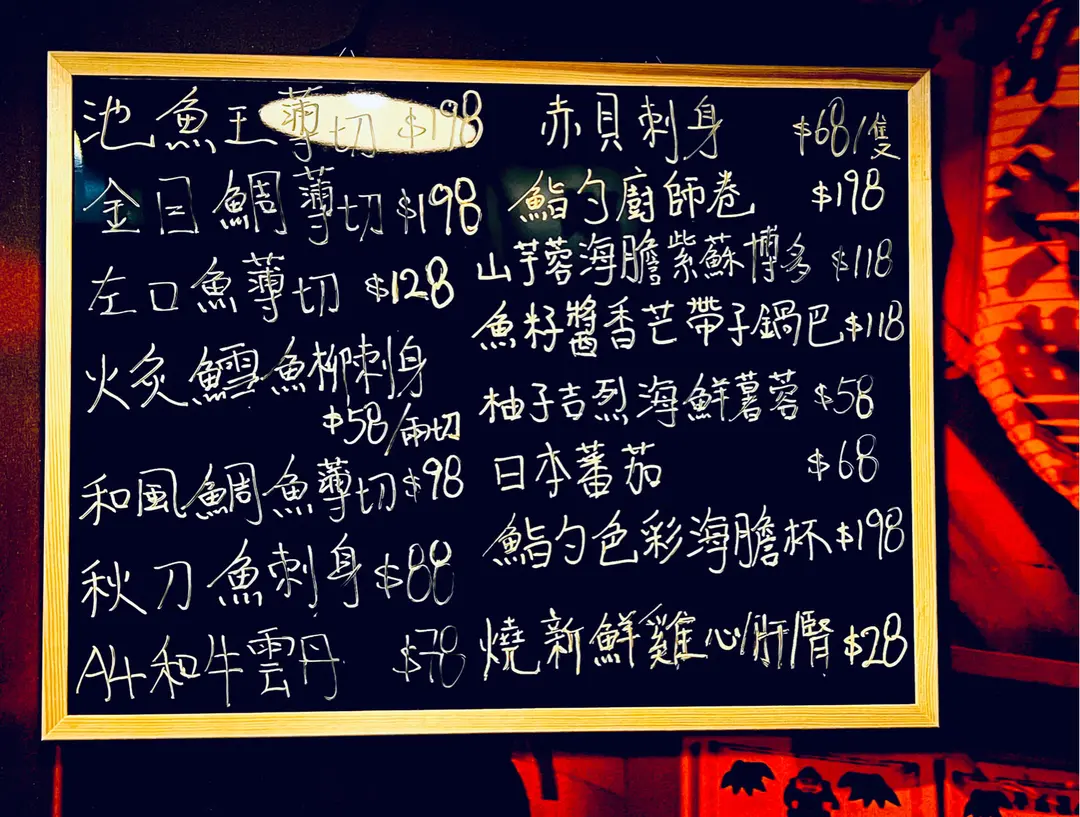 池魚王薄切 $198
金目鯛薄切 $198
左口魚薄切 $128
火炙鱈魚柳刺身
$58/兩切
和風鯛魚薄切 $98
秋刀魚刺身 $88
A4和牛雲丹 $78
赤貝刺身 $68/隻
鮨勺廚師卷 $198
山芋蓉海膽紫蘇博多 $118
魚籽醬香芒帶子鍋巴 $118
柚子吉烈海鮮薯蓉 $58
日本蕃茄 $68
鮨勺色彩海膽杯 $198
燒新鮮雞心/肝/腎 $28